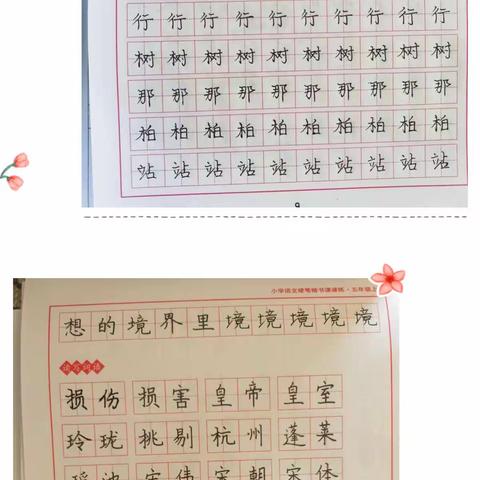 行行行行行行行行行行
树树树树树树树树树树
那那那那那那那那那那
柏柏柏柏柏柏柏柏柏柏
站站站站站站站站站站
9
小学语文硬笔楷书课课练·五年级上
想的境界里境境境境境
读写词语
损伤 损害 皇帝 皇室
玲珑 挑剔 杭州 蓬莱
瑶池 宏伟 宋朝 宋体